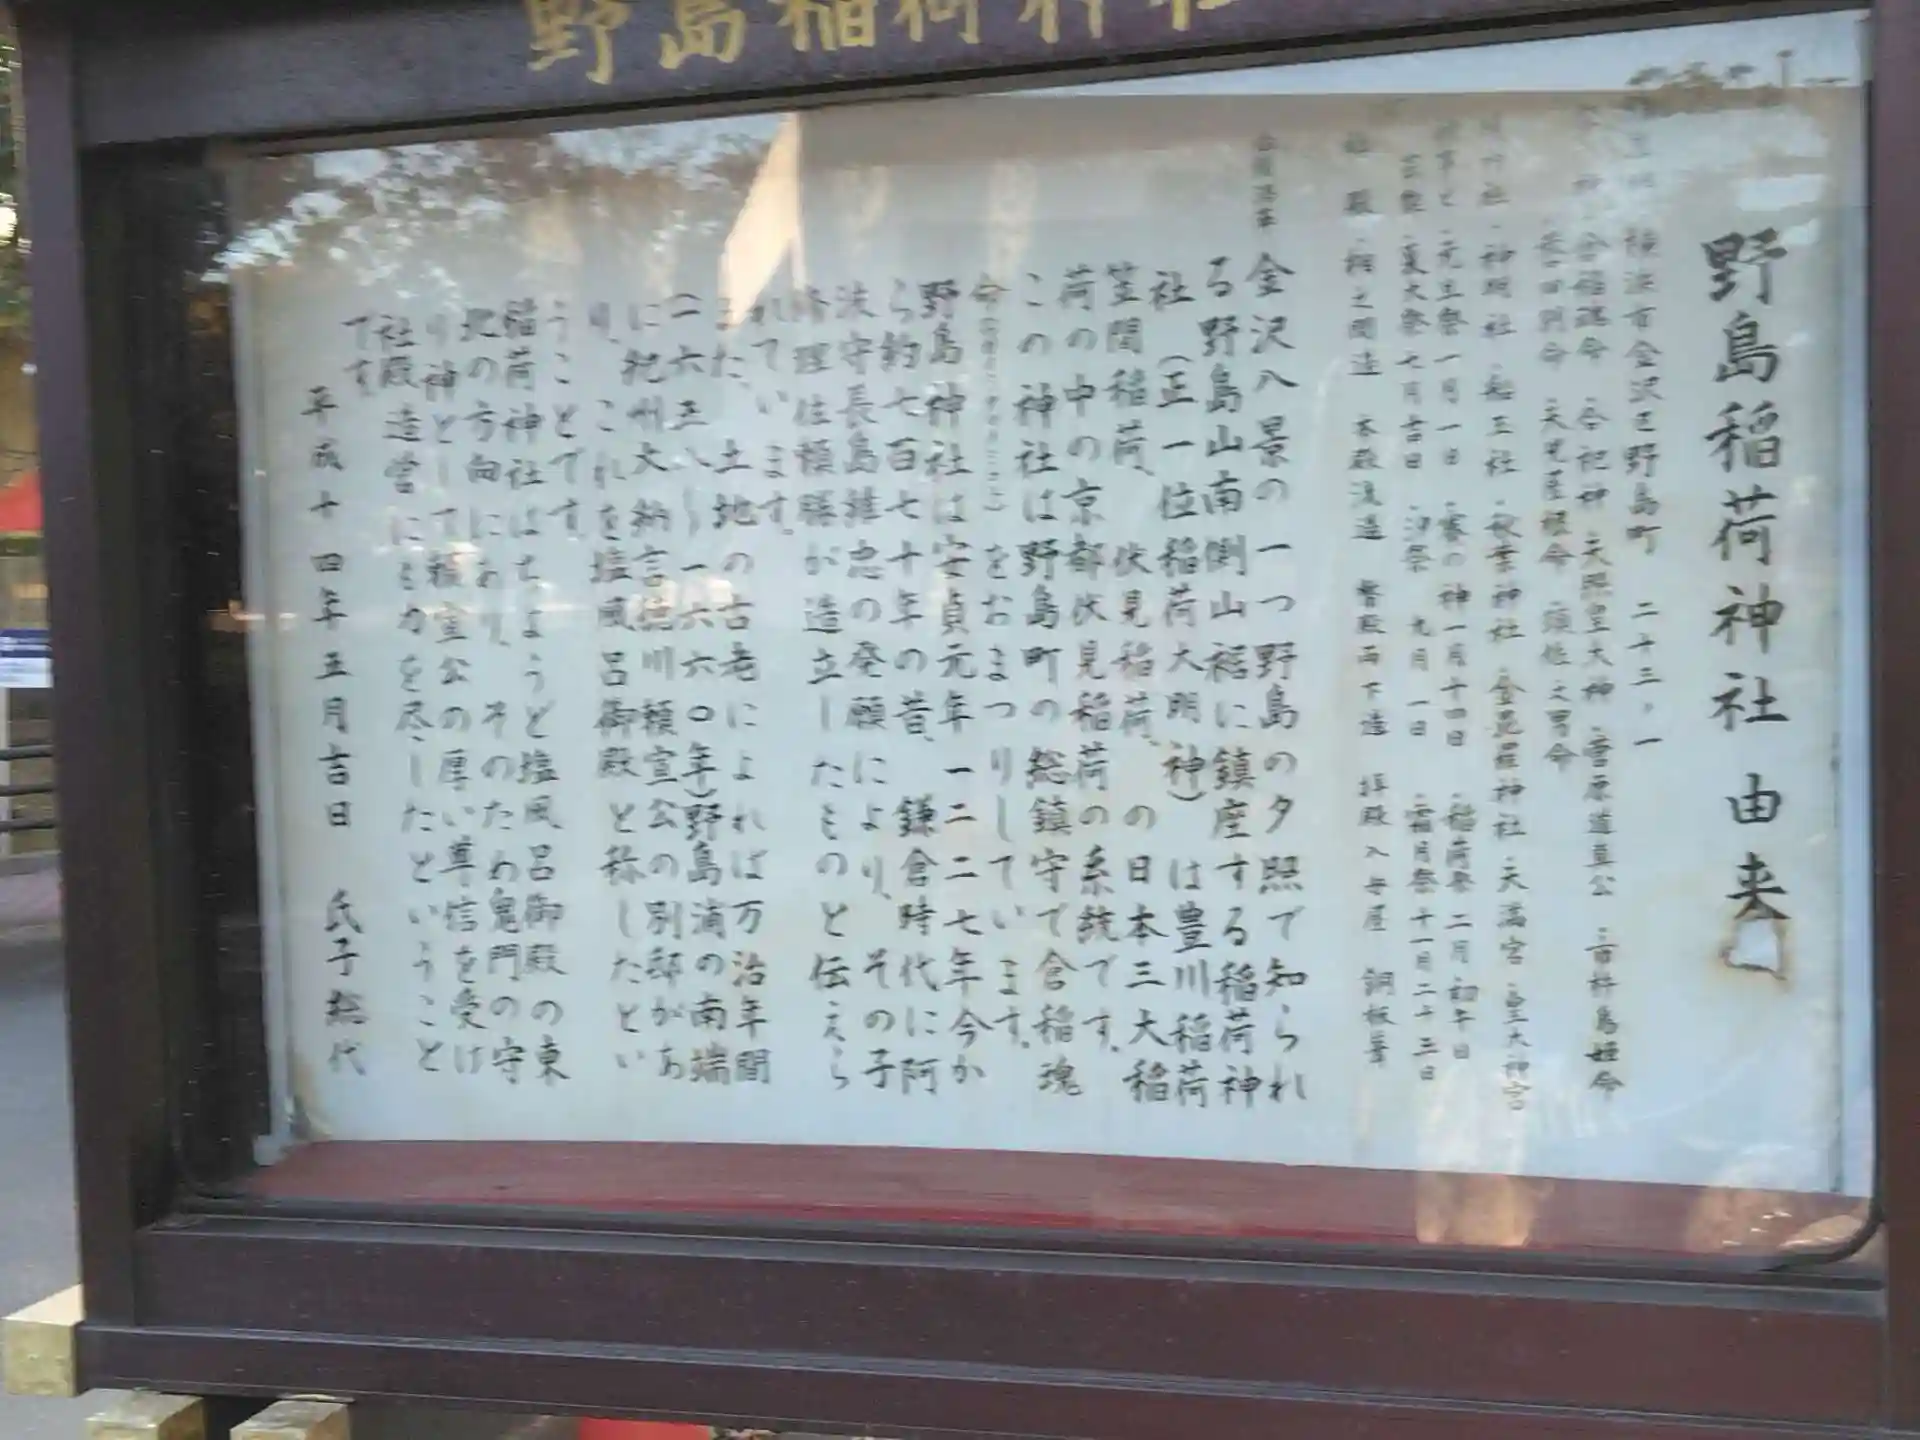 野島稲荷神社
野島稲荷神社由来
横浜市金沢区野島町 二十三ノ一
倉稲魂命 合祀神 天照皇大神 菅原道真公 市杵島姫命
誉田別命 天児屋根命 須佐之男命
神明社 船玉社 秋葉神社 金毘羅神社 天満宮 皇大神宮
元旦祭 一月一日 寒の神 一月十四日 稲荷祭 二月初午日
夏大祭 七月吉日 汐祭 九月一日 霜月祭 十一月二十三日
社殿 相之間造 本殿流造 幣殿両下造 拝殿入母屋 銅板葺
金沢八景の一つ野島の夕照で知られ
る野島山南側山裾に鎮座する稲荷神
社(正一位稲荷大明神)は豊川稲荷
笠間稲荷、伏見稲荷、の日本三大稲
荷の中の京都伏見稲荷の系統です。
この神社は野島町の総鎮守で倉稲魂
命 をおまつりしています。
野島神社は安貞元年一二二七年今か
ら約七百七十年の昔、鎌倉時代に阿
波守長島雄忠の発願により、その子
修理佐頼勝が造立したものと伝えら
れています。
また、土地の古老によれば万治年間
(一六五八〜一六六〇年)野島浦の南端
に紀州大納言徳川頼宣公の別邸があ
り、これを塩風呂御殿と称したとい
うことです。
稲荷神社はちょうど塩風呂御殿の東
北の方向にあり、そのため鬼門の守
り神として頼宣公の厚い尊信を受け
社殿造営にも力を尽したということ
です。
平成十四年五月吉日 氏子総代